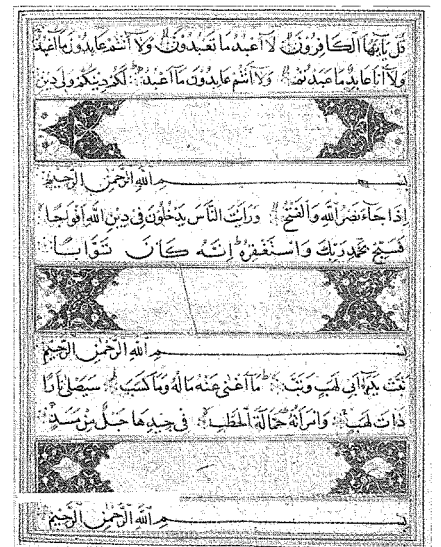 قل يا أيها الكافرون لا أعبد ما تعبدون ولا أنتم عابدون ما أعبد
ولا أنا عابد ما عبدتم ولا أنتم عابدون ما أعبد لكم دينكم ولي دين
بسم الله الرحمن الرحيم
إذا جاء نصر الله والفتح ورأيت الناس يدخلون في دين الله أفواجا
فسبح بحمد ربك واستغفره إنه كان توابا
بسم الله الرحمن الرحيم
تبت يدا أبي لهب وتب ما أغنى عنه ماله وما كسب سيصلى نارا
ذات لهب وامرأته حمالة الحطب في جيدها حبل من مسد
بسم الله الرحمن الرحيم